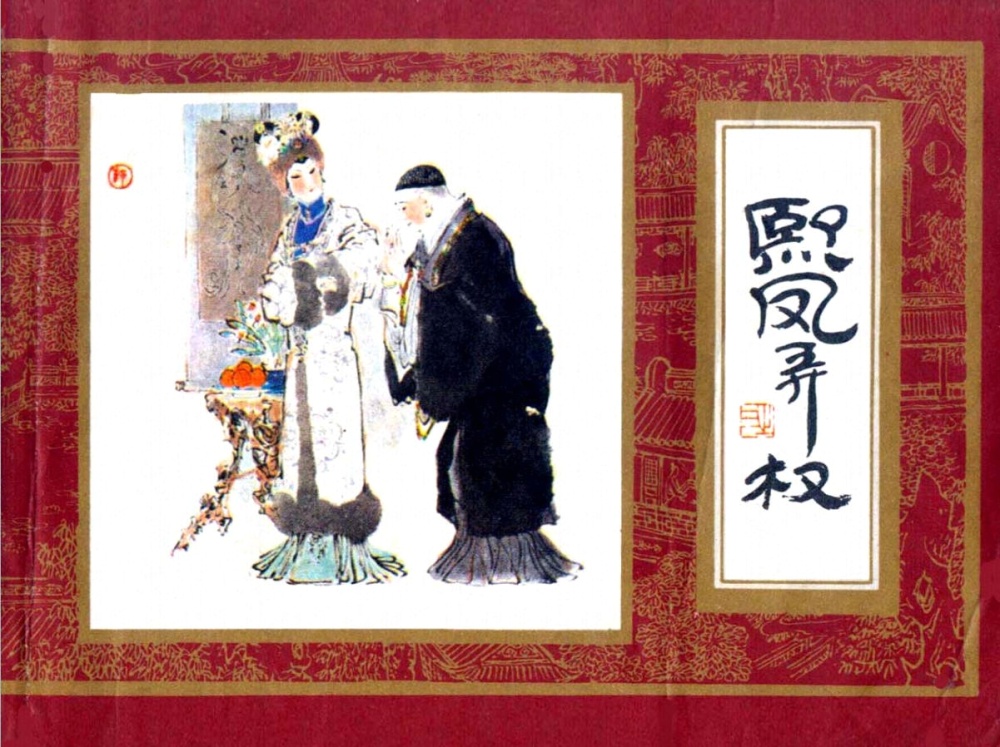 熙凤弄权